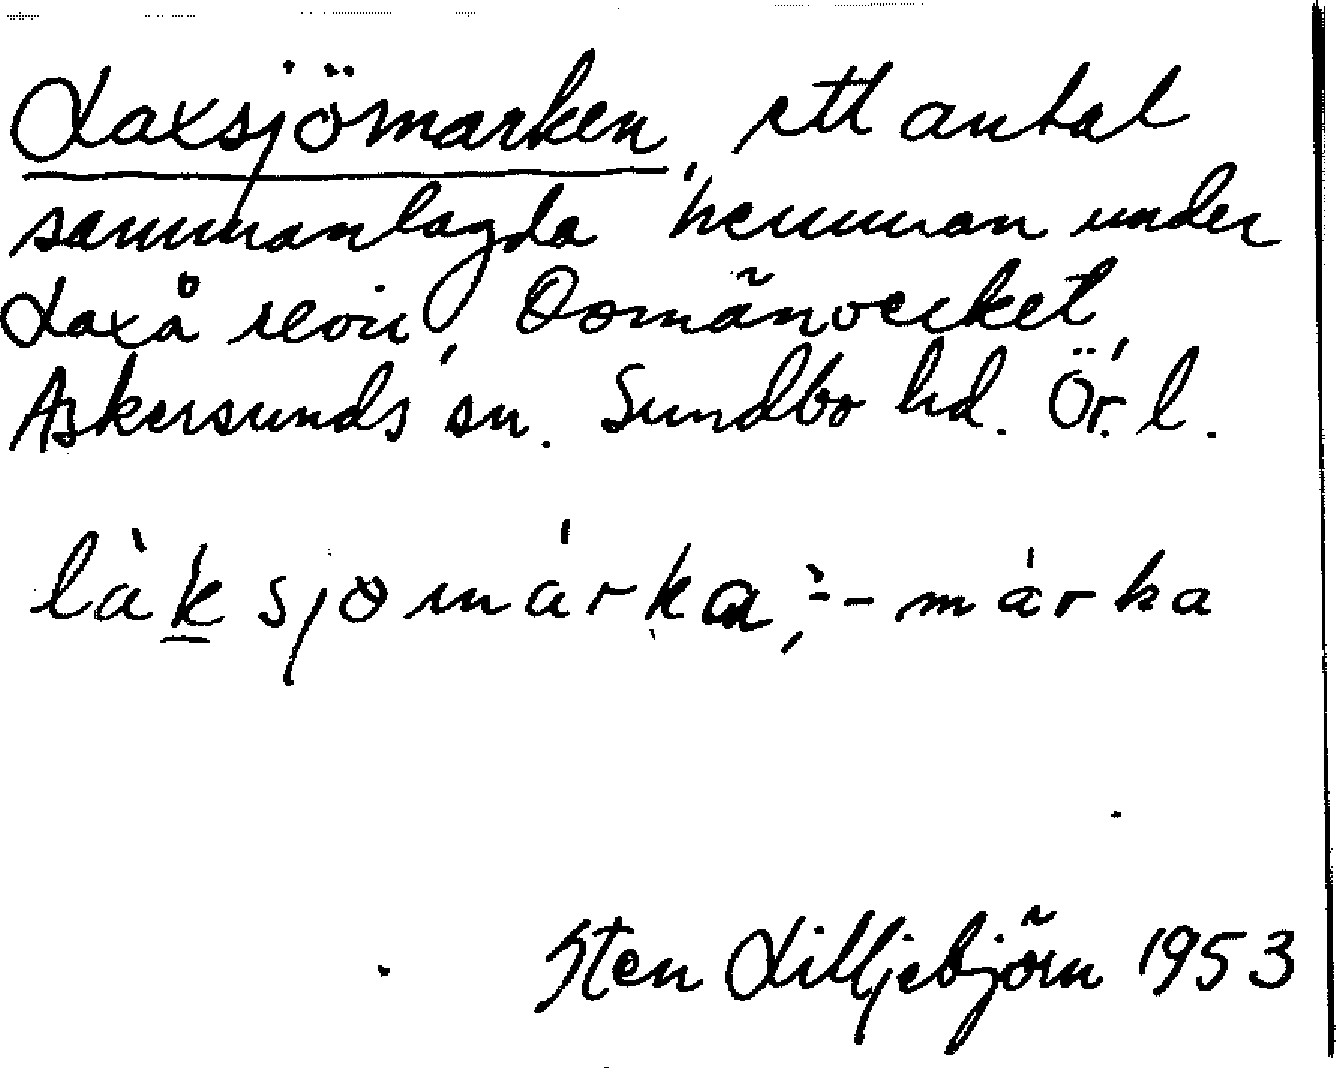 Laxsjömarken, ett antal
sammanlagda hemman under
Laxå revir, Domänverket,
Askersunds sn. Sundbo hd. Ör. l.
làksjömárka, :- márka
Sten Lilljebjörn 1953